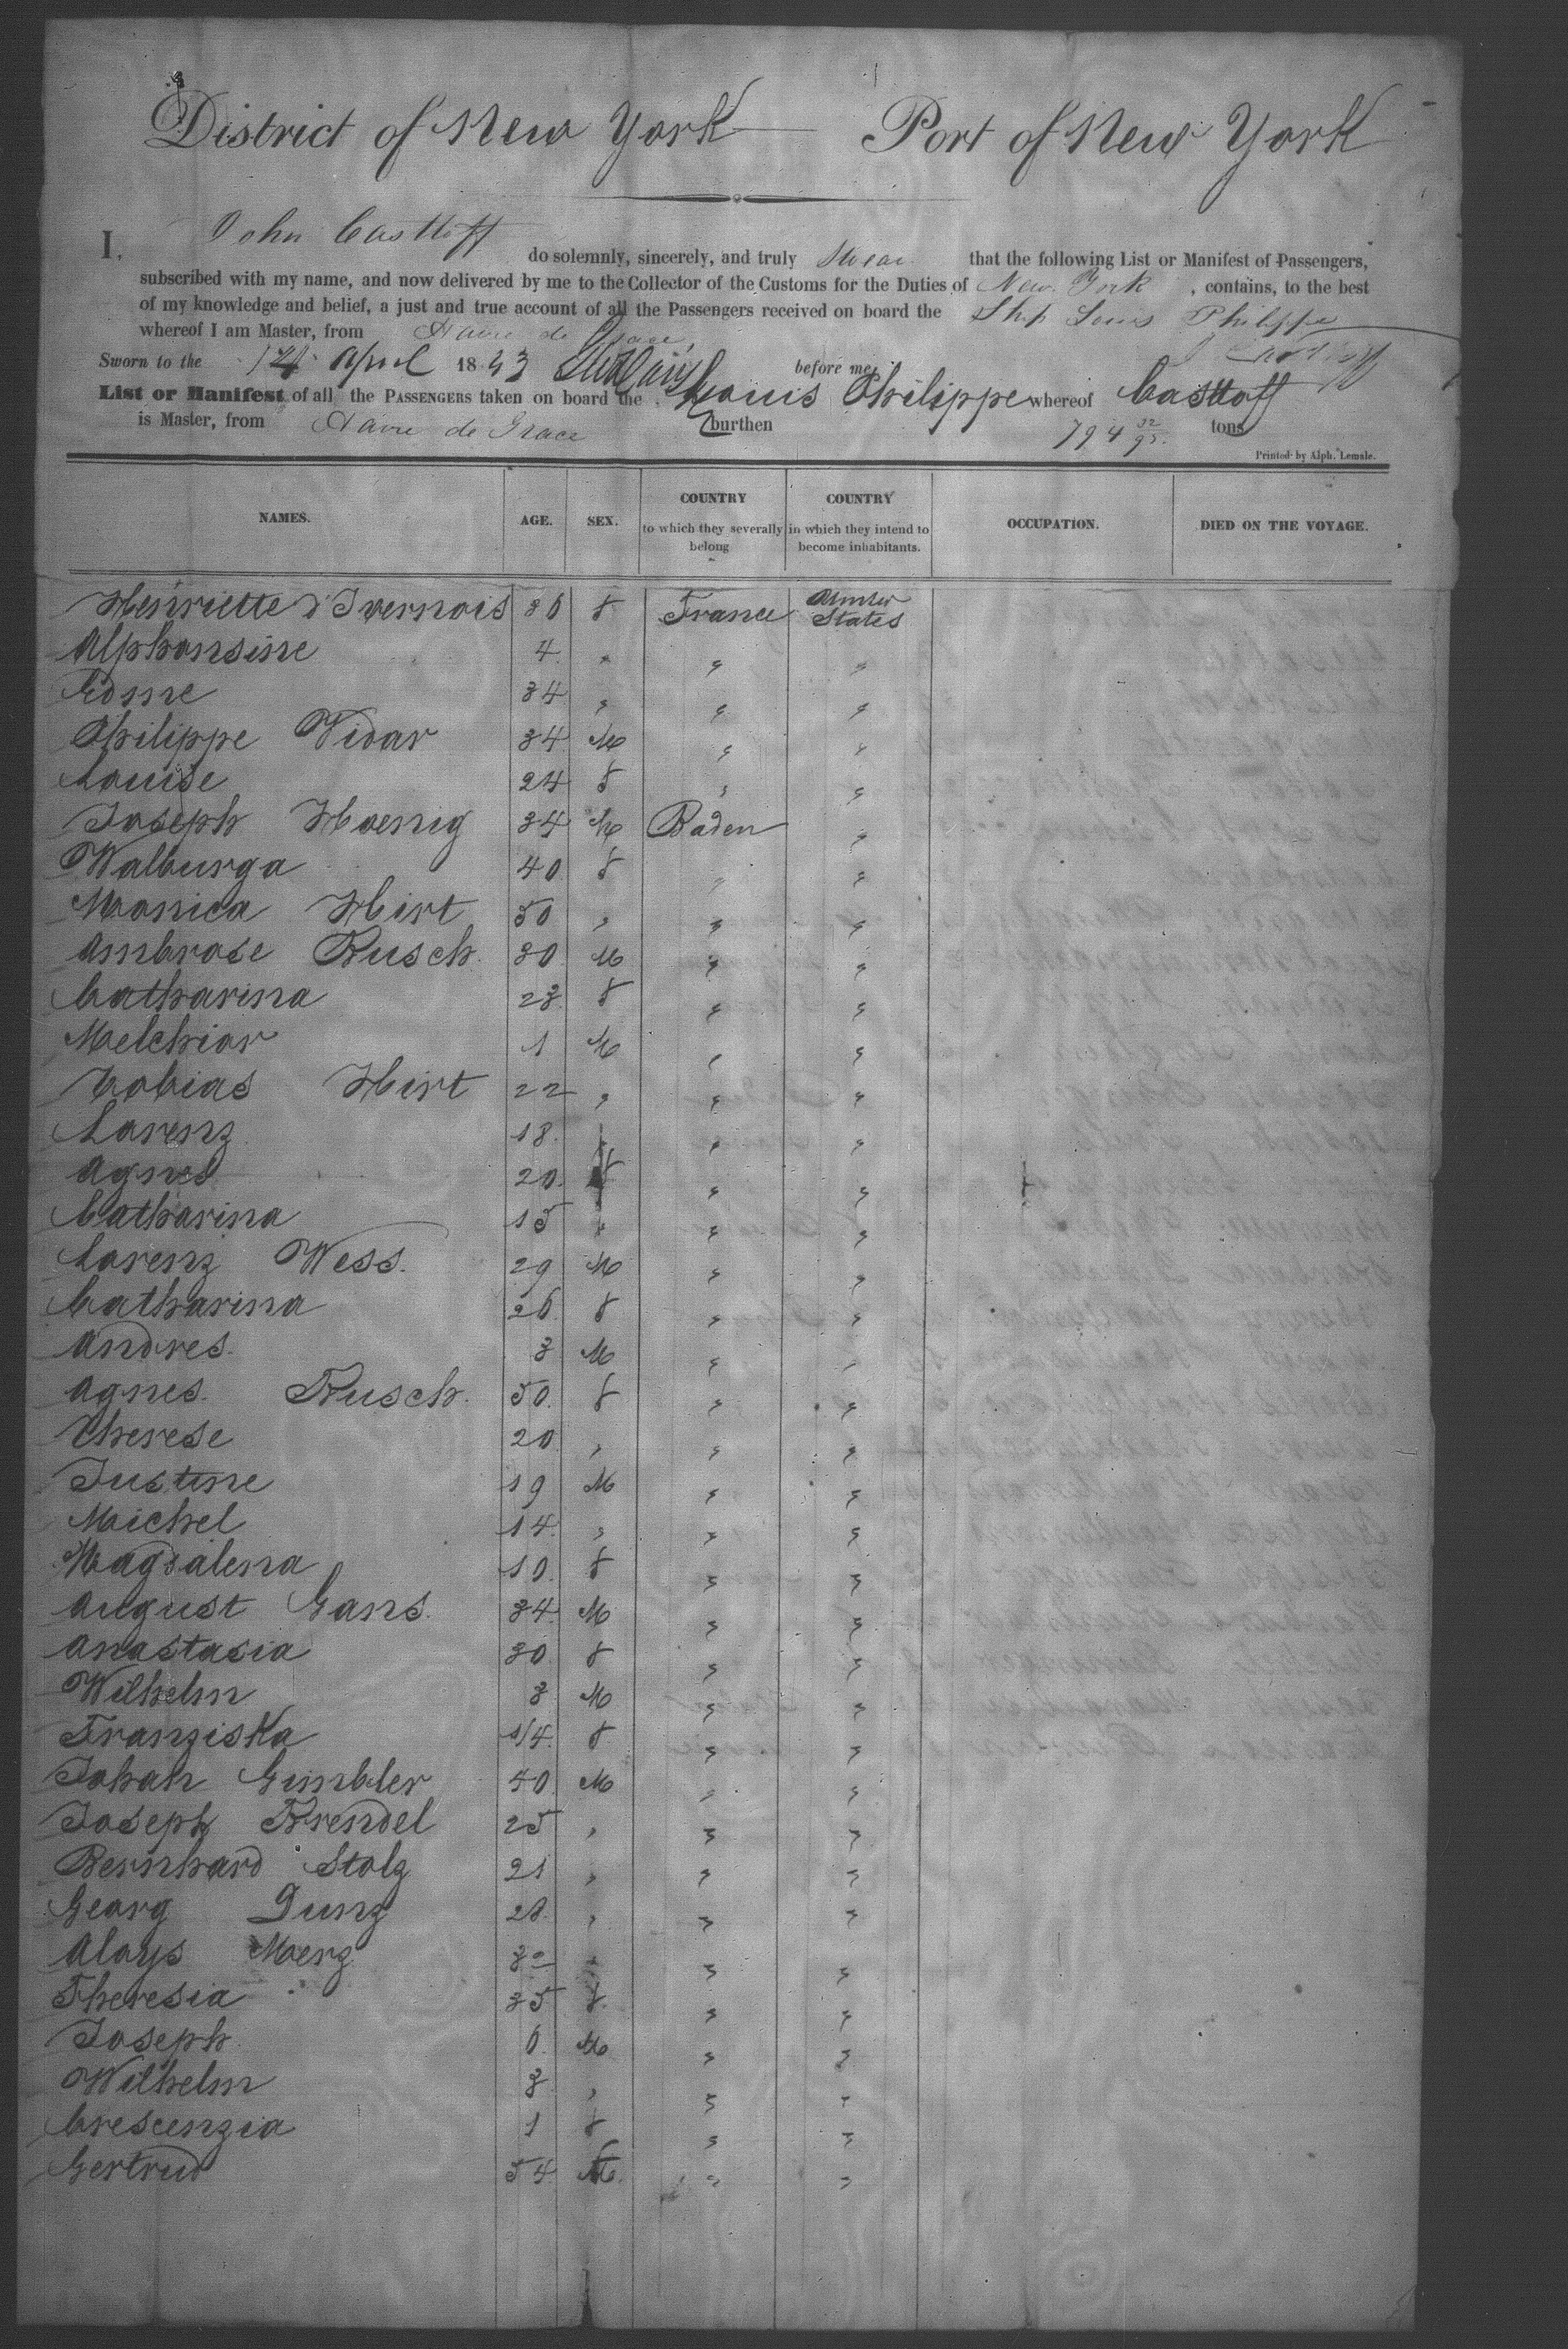 District of New York Port of New York
I, John Casttoff do solemnly, sincerely, and truly swear that the following List or Manifest of Passengers,
subscribed with my name, and now delivered by me to the Collector of the Customs for the Duties of New York, contains, to the best
of my knowledge and belief, a just and true account of all the Passengers received on board the Ship Louis Philippe
whereof I am Master, from Havre de Grace,
Sworn to the April 1843 before me,
List or Manifest of all the PASSENGERS taken on board the Louis Philippe whereof Casttoff
is Master, from Havre de Grace burthen 794 32/95 tons
Printed by Alph. Lemale.
NAMES. AGE. SEX. COUNTRY to which they severally belong COUNTRY in which they intend to become inhabitants. OCCUPATION. DIED ON THE VOYAGE.
Henriette d'Ivernois 36 f France United States
Alphonsine 4 " " "
Edme 34 " " "
Philippe Vidar 34 M " "
Louise 24 f " "
Joseph Hoenig 34 M Baden "
Walburga 40 f " "
Monica Hirt 50 " " "
Ambrose Busch. 30 M " "
Catharina 23 f " "
Melchior 1 M " "
Tobias Hirt 22 " " "
Lorenz 18 " " "
Agnes 20 f " "
Catharina 15 " " "
Lorenz Wess. 29 M " "
Catharina 26 f " "
Andres. 3 M " "
Agnes. Busch. 50. f " "
Therese 20 " " "
Justine 19 M " "
Michel 14. " " "
Magdalena 10. f " "
August Gans. 34 M " "
Anastasia 30 f " "
Wilhelm 3 M " "
Franziska 1/4 f " "
Johan Gimbler 40 M " "
Joseph Brendel 25 " " "
Bernhard Stolz 21 " " "
Georg Dunz 28. " " "
Aloys Merz 30 " " "
Theresia 35 f " "
Joseph 6. M " "
Wilhelm 3 " " "
Crescenzia 1 f " "
Gertrud 54 M. " "